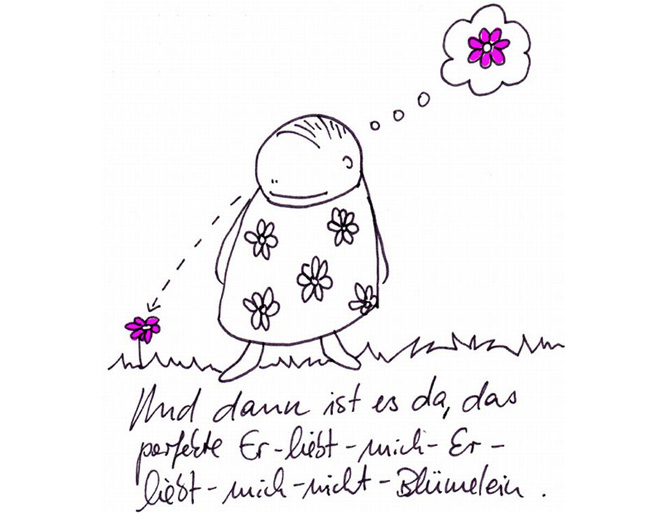 Und dann ist es da, das
perfekte Er-liebt-mich-Er-
liebt-mich-nicht-Blümelein.